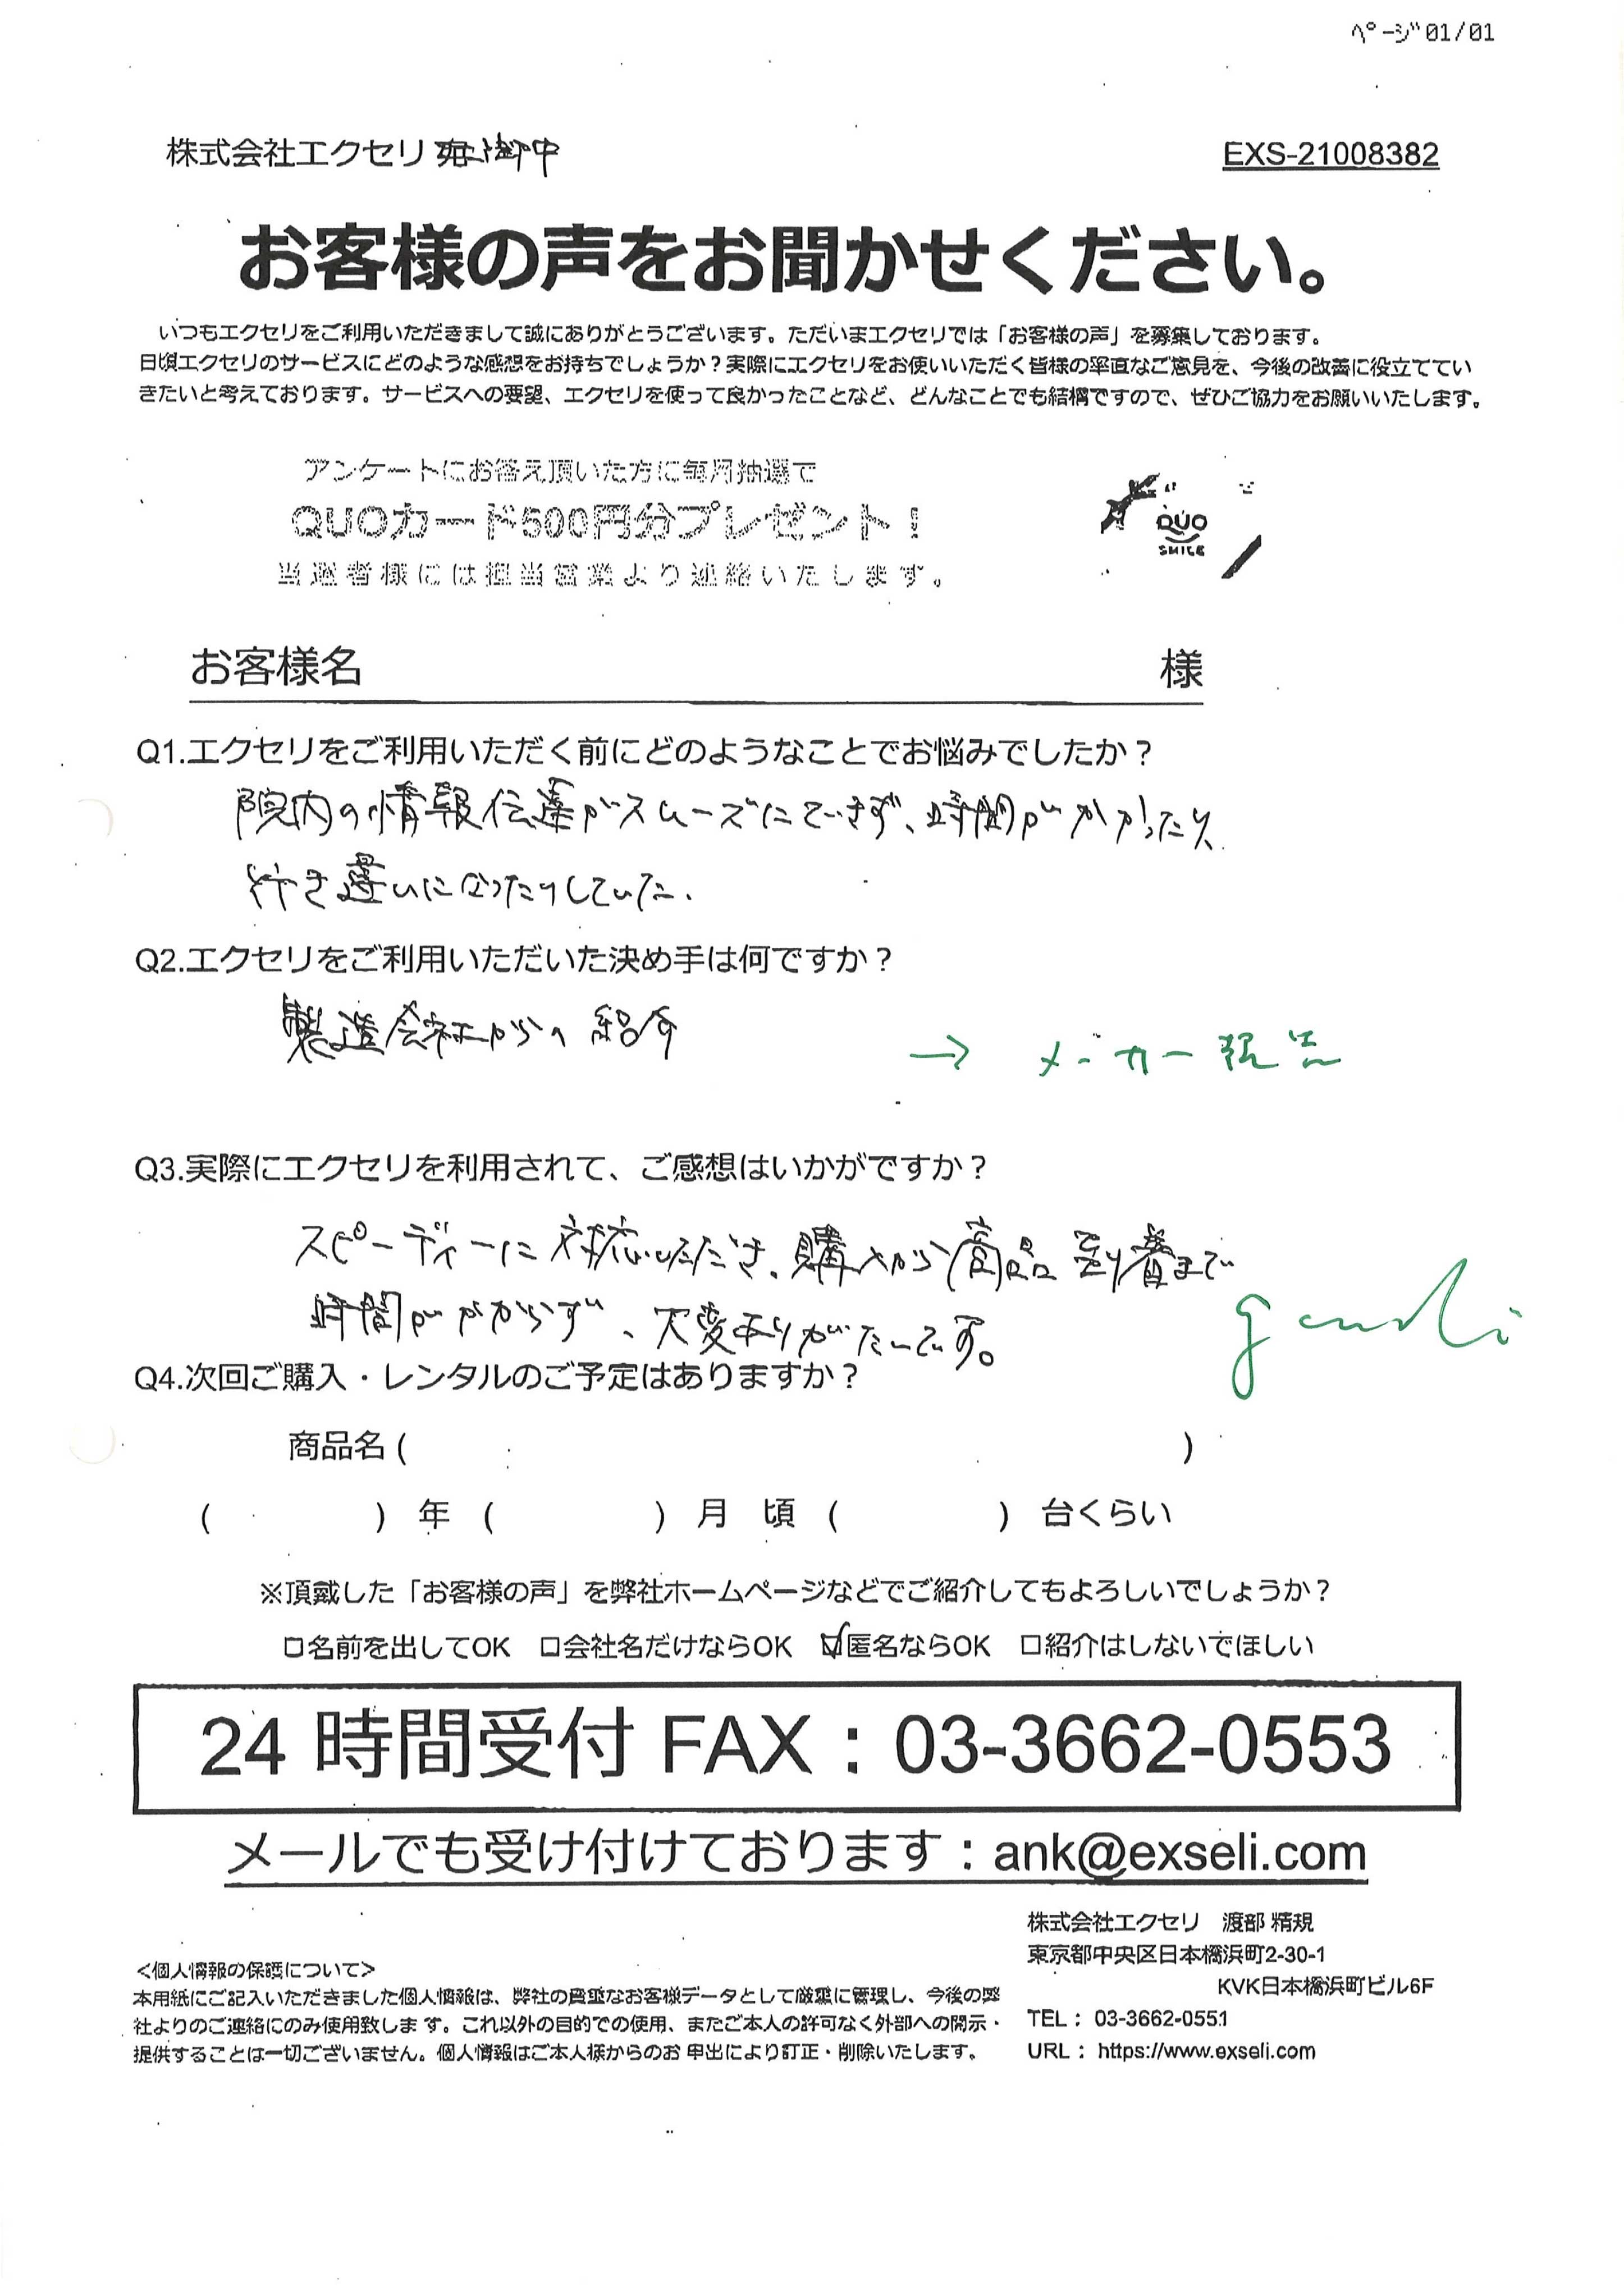 ページ01/01
株式会社エクセリ 宛 御中
EXS-21008382
お客様の声をお聞かせください。
いつもエクセリをご利用いただきまして誠にありがとうございます。ただいまエクセリでは「お客様の声」を募集しております。
日頃エクセリのサービスにどのような感想をお持ちでしょうか？実際にエクセリをお使いいただく皆様の率直なご意見を、今後の改善に役立ててい
きたいと考えております。サービスへの要望、エクセリを使って良かったことなど、どんなことでも結構ですので、ぜひご協力をお願いいたします。
アンケートにお答え頂いた方に毎月抽選で
QUOカード500円分プレゼント！
当選者様には担当営業より連絡いたします。
QUO
SMILE
お客様名 様
Q1.エクセリをご利用いただく前にどのようなことでお悩みでしたか？
院内の情報伝達がスムーズにできず、時間がかかったり、
行き違いになったりしていた。
Q2.エクセリをご利用いただいた決め手は何ですか？
製造会社からの紹介
→ メーカー報告
Q3.実際にエクセリを利用されて、ご感想はいかがですか？
スピーディーに対応いただき、購入から商品到着まで
時間がかからず、大変ありがたいです。
Q4.次回ご購入・レンタルのご予定はありますか？
商品名 ( )
( ) 年 ( ) 月 頃 ( ) 台くらい
※頂戴した「お客様の声」を弊社ホームページなどでご紹介してもよろしいでしょうか？
□名前を出してOK □会社名だけならOK ☑匿名ならOK □紹介はしないでほしい
24 時間受付 FAX：03-3662-0553
メールでも受け付けております：ank@exseli.com
株式会社エクセリ 渡部 精規
東京都中央区日本橋浜町2-30-1
KVK日本橋浜町ビル6F
TEL： 03-3662-0551
URL： https://www.exseli.com
<個人情報の保護について>
本用紙にご記入いただきました個人情報は、弊社の貴重なお客様データとして厳重に管理し、今後の弊
社よりのご連絡にのみ使用致します。これ以外の目的での使用、またご本人の許可なく外部への開示・
提供することは一切ございません。個人情報はご本人様からのお申出により訂正・削除いたします。